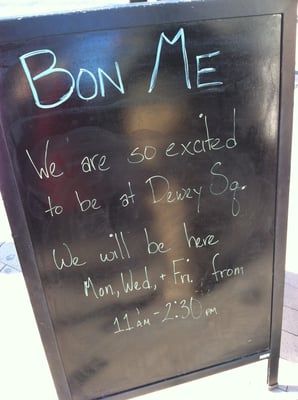 BON ME
We are so excited
to be at Dewey Sq.
We will be here
Mon, Wed, + Fri. from
11 AM - 2:30 PM